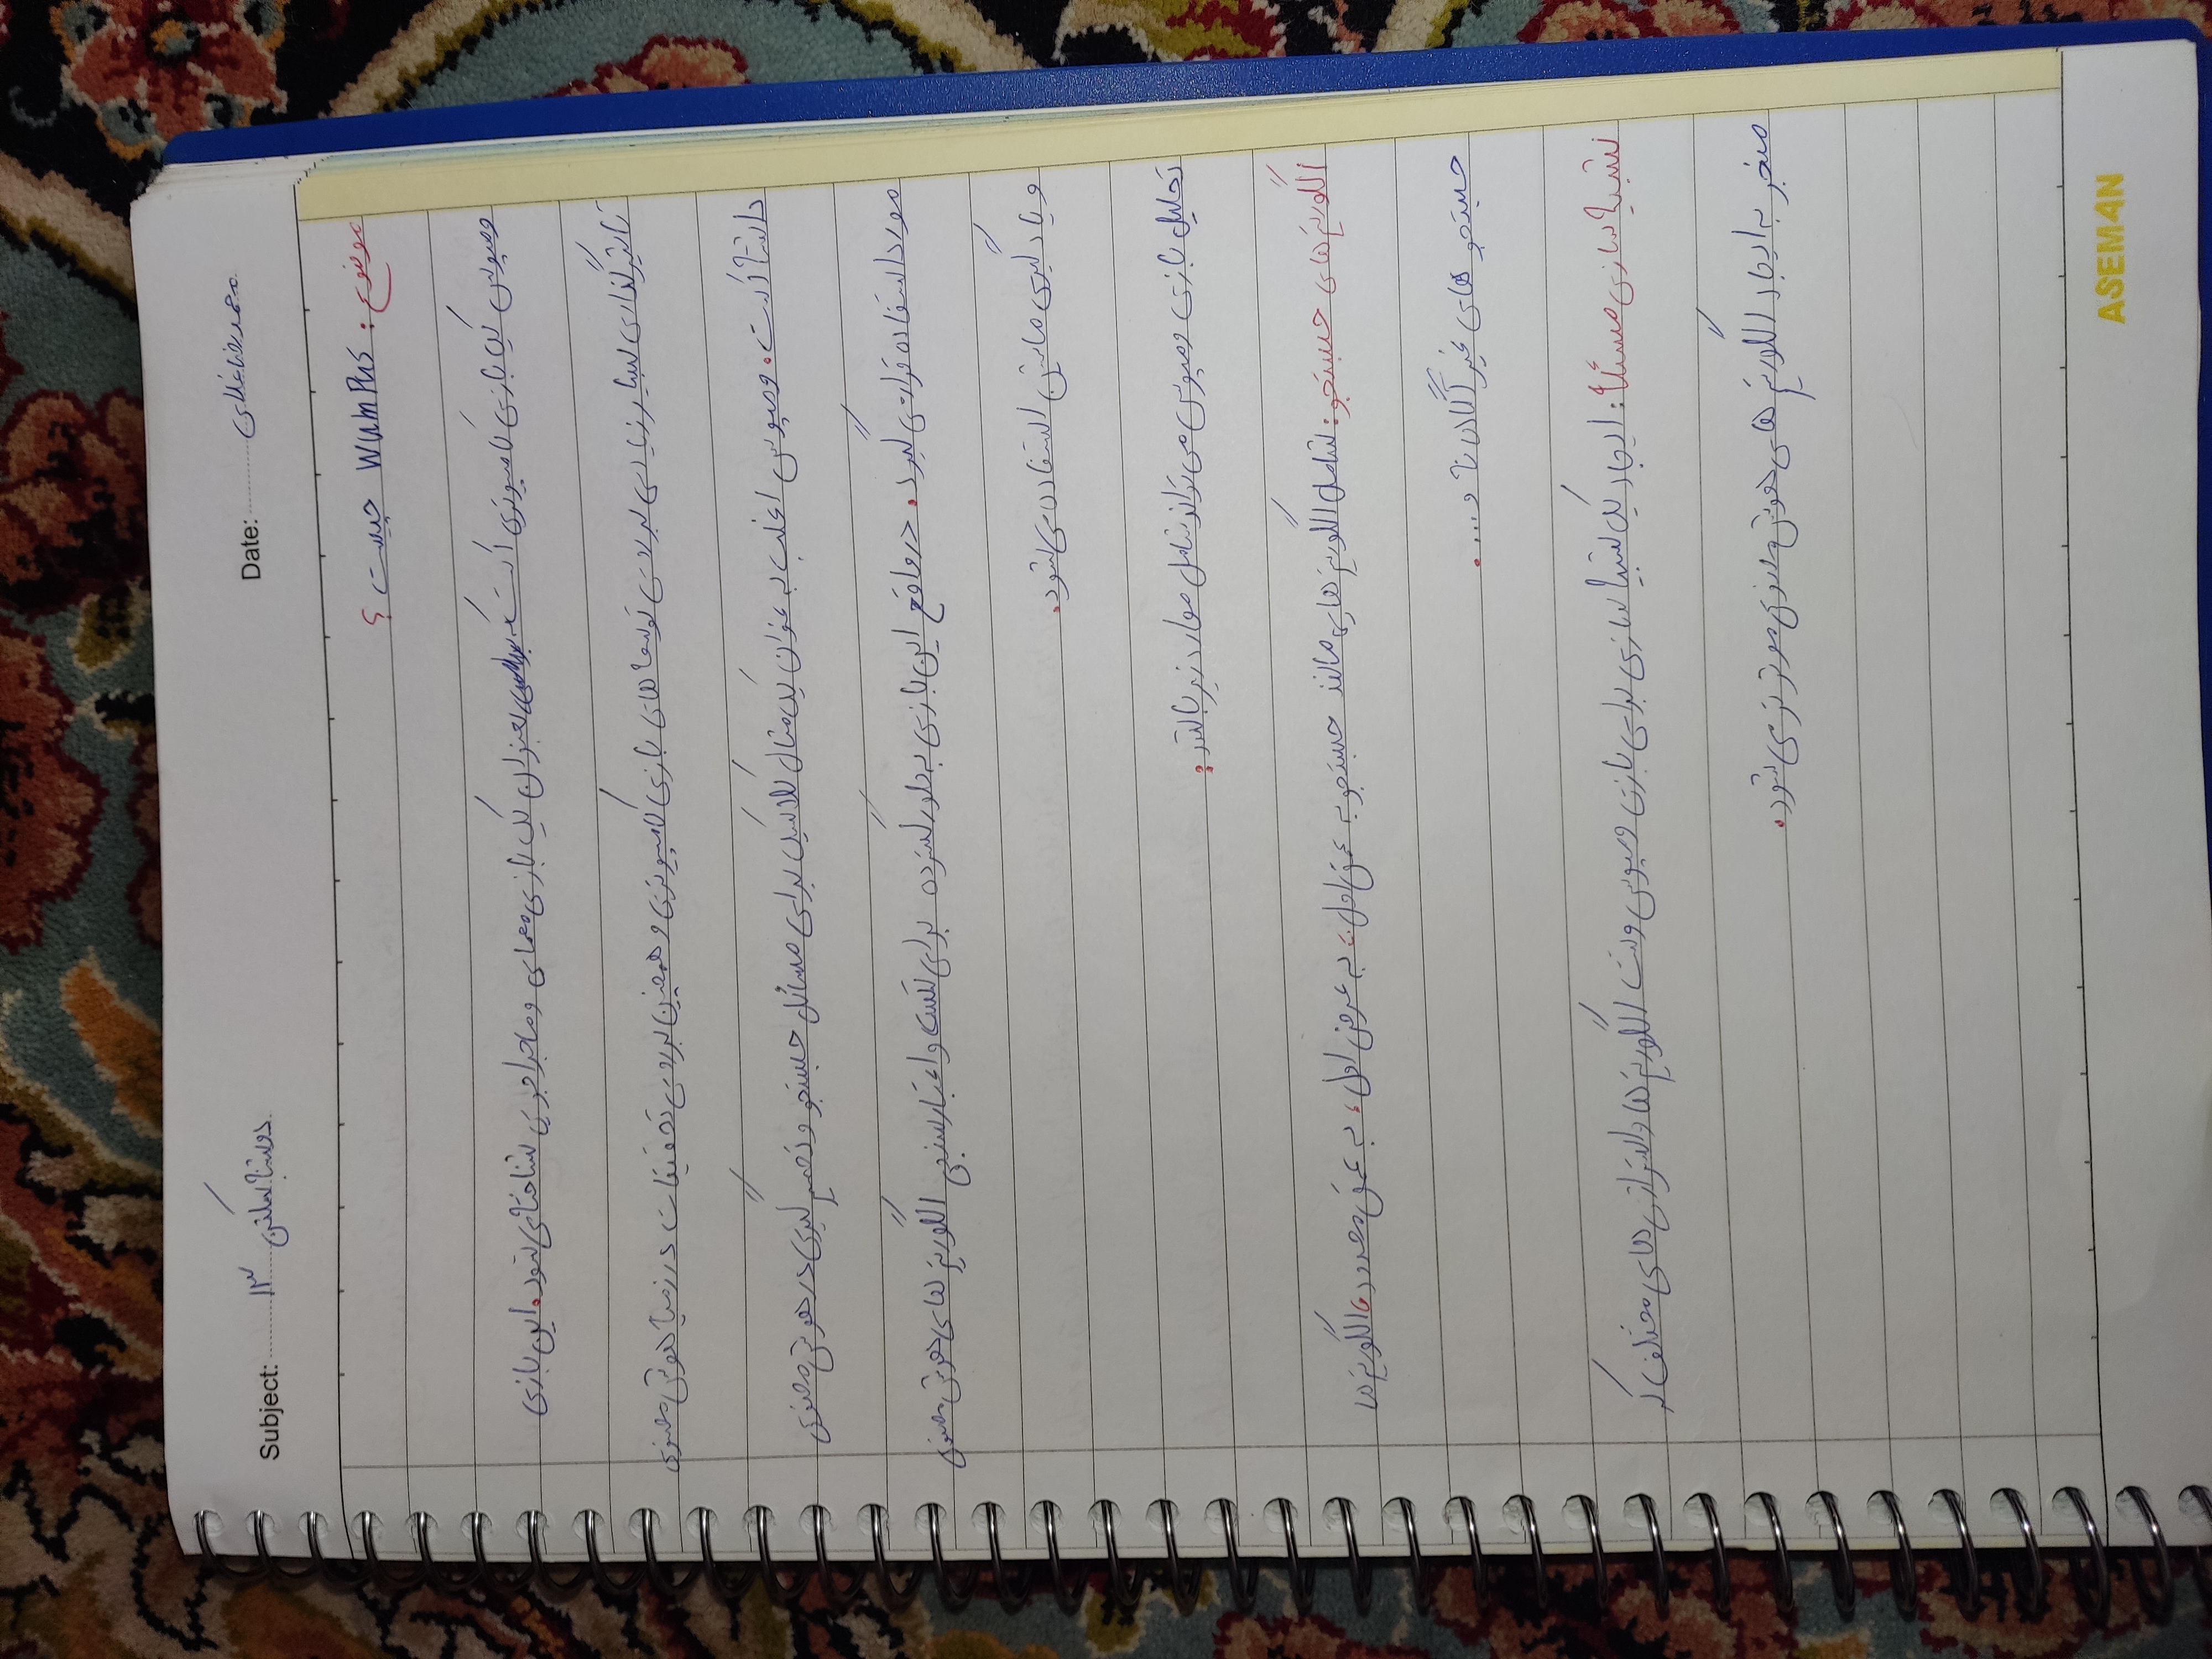 Subject: دوشنبه سکشن ۱۳
Date: محمدرضا غلامی
موضوع: Wumpus چیست؟
ومپوس یک بازی کامپیوتری است که بعنوان یک بازی معمای و ماجراجویی شناخته می شود. این بازی
تاثیرگذاری بسیار زیادی بر روی توسعه های بازی کامپیوتری و همچنین بر روی تحقیقات در زمینه هوش مصنوعی
داشته است. ومپوس اغلب به عنوان یک مثال کلاسیک برای مسائل جستجو و تصمیم گیری در هوش مصنوعی
مورد استفاده قرار می گیرد. در واقع این بازی به طور گسترده برای تست و اعتبارسنجی الگوریتم های هوش مصنوعی
و یادگیری ماشین استفاده می شود.
تحلیل بازی ومپوس می تواند شامل موارد زیر باشد:
الگوریتم های جستجو: شامل الگوریتم هایی مانند جستجو به عمق اول، به عرض اول، به عمق محدود، الگوریتم ها
جستجو های غیر آگاهانه و....
شبیه سازی مسئله: ایجاد یک شبیه سازی برای بازی ومپوس و تست الگوریتم ها و استراتژی های مختلف که
منجر به ایجاد الگوریتم های هوش مصنوعی موثرتر می شود.
ASEMAN